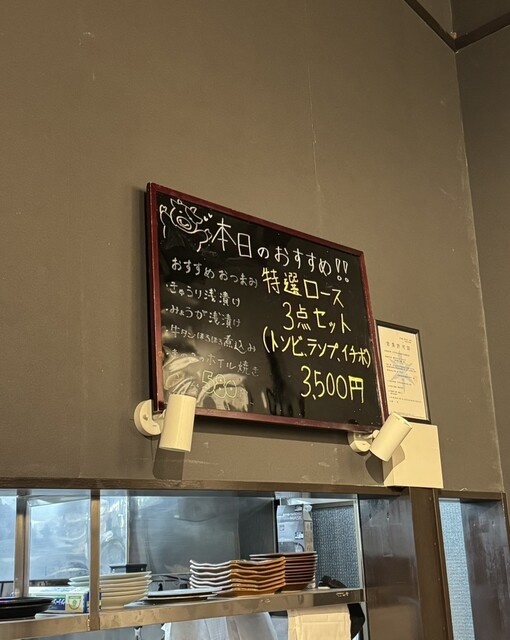 本日のおすすめ!!
おすすめ おつまみ
・きゅうり浅漬け
・みょうが浅漬け
・牛タンほろほろ煮込み
ホイル焼き
特選ロース
3点セット
(トンビ、ランプ、イチボ)
3,500円